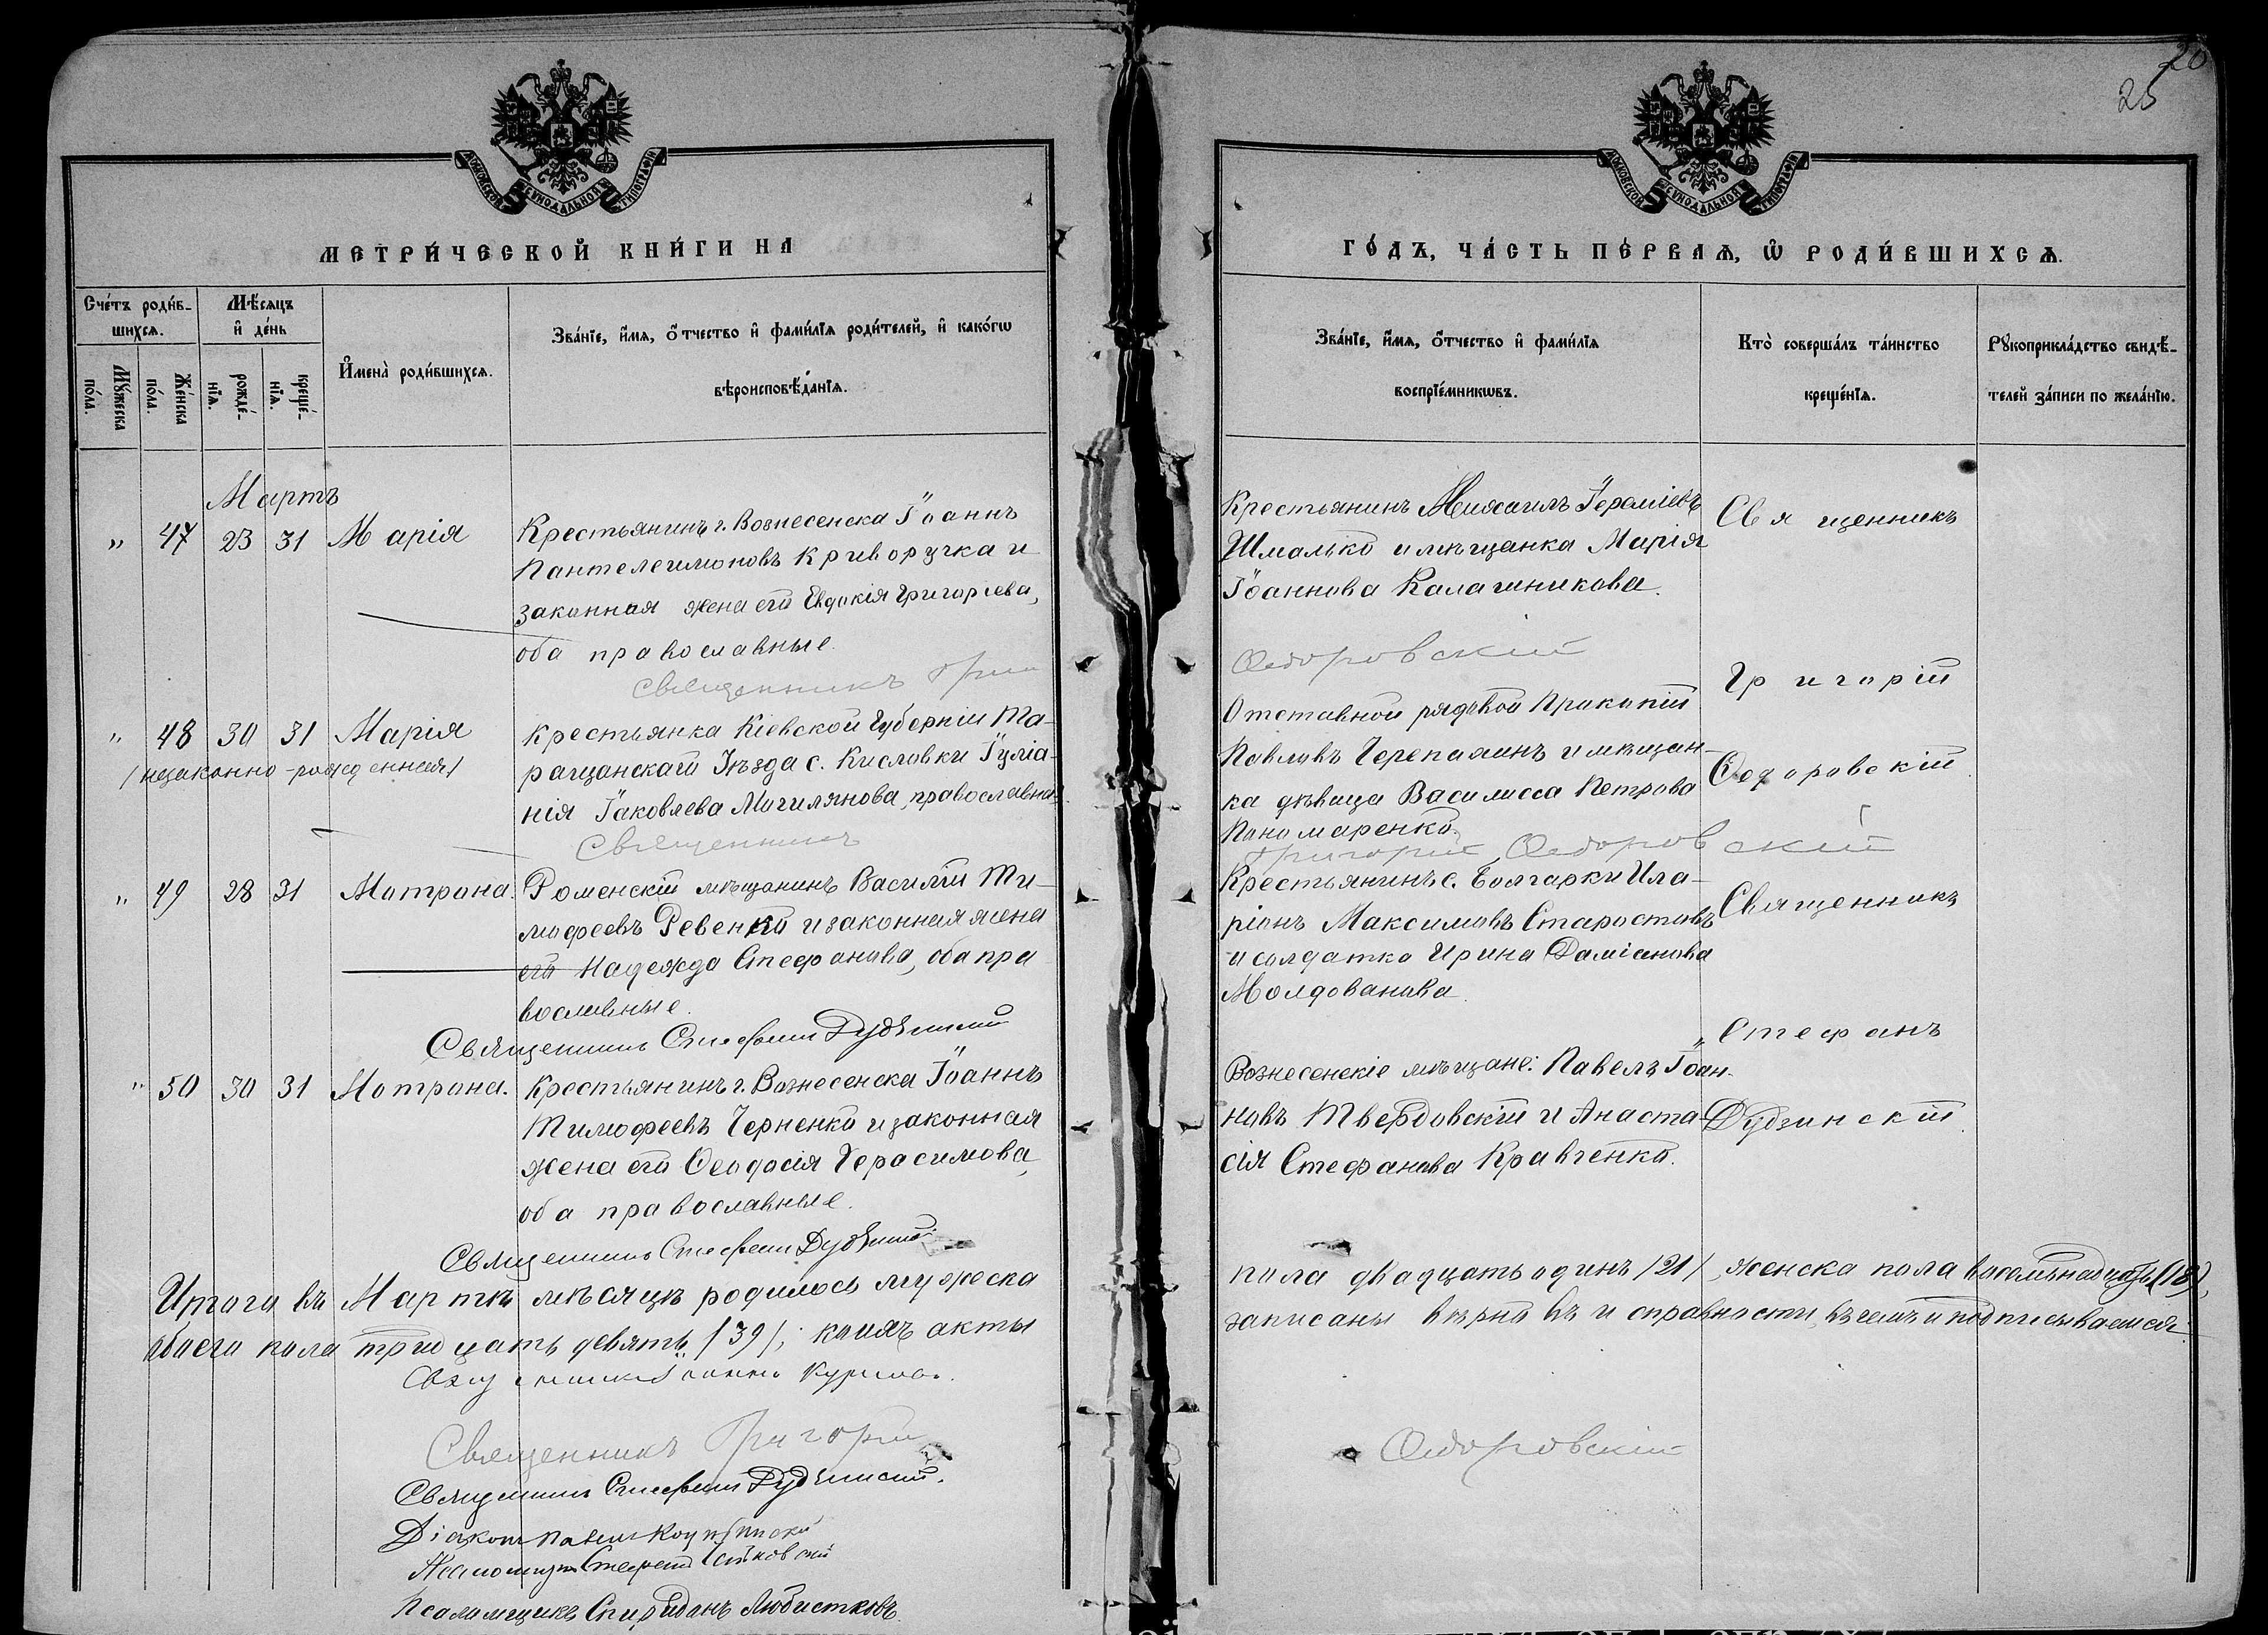 20
25
МОСКОВСКОЙ СѴНОДАЛЬНОЙ ТИПОГРАФІИ
МОСКОВСКОЙ СѴНОДАЛЬНОЙ ТИПОГРАФІИ
МЕТРИ́ЧЕСКОЙ КНИ́ГИ НА
ГО́ДЪ, ЧА́СТЬ ПЕ́РВАѦ, Ѿ РОДИ́ВШИХСѦ.
Сче́тъ роди́в-
шихсѧ.
Мѣ́сѧцъ
и҆ де́нь
Мꙋ́жеска
по́ла.
Же́нска
по́ла.
рожде́-
нїѧ.
креще́-
нїѧ.
И҆мена̀ роди́вшихсѧ.
Зва́нїе, и҆́мѧ, ѻ҆́тчество и҆ фами́лїѧ роди́телей, и҆ како́гѡ
вѣроисповѣ́данїѧ.
Зва́нїе, и҆́мѧ, ѻ҆́тчество и҆ фами́лїѧ
воспрїе́мникѡвъ.
Кто̀ соверша́лъ та́инство
креще́нїѧ.
Рꙋкоприкла́дство свидѣ́-
телей за́писи по жела́нїю.
Мартъ
" 47 23 31 Марія
Крестьянинъ г. Вознесенска Іоаннъ
Пантелеимоновъ Криворучка и
законная жена его Евдокія Григоріева,
оба православные.
Священникъ Григ
Крестьянинъ Михаилъ Іереміевъ
Шмалько и мѣщанка Марія
Іоаннова Калашникова.
Ѳедоровскій
Священникъ
Григорій
Ѳедоровскій
" 48 30 31 Марія
/незаконно-рожденная/
Крестьянка Кіевской Губерніи Та-
ращанскаго Уѣзда с. Кисловки Іуліа-
нія Іаковлева Могилянова, православная.
Священникъ
Отставной рядовой Прокопій
Павловъ Черепахинъ и мѣщан-
ка дѣвица Василисса Петрова
Пономаренко.
Григорій Ѳедоровскій
" 49 28 31 Матрона.
Роменскій мѣщанинъ Василій Ти-
мофеевъ Ревенко и законная жена
его Надежда Стефанова, оба пра
вославные.
Священникъ Стефанъ Дудзинскій
Крестьянинъ с. Болгарки Ила-
ріонъ Максимовъ Старостовъ
и солдатка Ирина Даміанова
Молдованова.
Священникъ
Стефанъ
Дудзинскій.
" 50 30 31 Матрона.
Крестьянинъ г. Вознесенска Іоаннъ
Тимофеевъ Черненко и законная
жена его Ѳеодосія Герасимова,
оба православные.
Священникъ Стефанъ Дудзинскій
Вознесенскіе мѣщане: Павелъ Іоан-
новъ Твердовскій и Анаста-
сія Стефанова Кравченко.
Итого въ Мартѣ мѣсяцѣ родилось мужеска
пола двадцать одинъ /21/, женска пола восемьнадцать (18),
обоего пола тридцать девять /39/; коихъ акты
записаны вѣрно въ исправности, въ чемъ и подписываемся:
Священникъ Іоаннъ
Священникъ Григорій
Ѳедоровскій
Священникъ Стефанъ Дудзинскій.
Діаконъ Павелъ
Псаломщикъ
Псаломщикъ Спиридонъ Любистковъ.